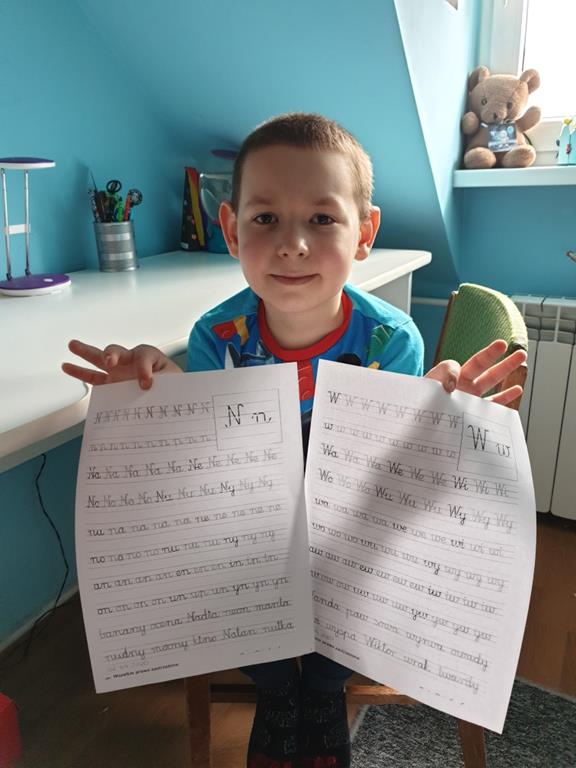 N N N N N N N N N
N n
n n n n n n n n n
Na Na Na Na Ne Ne Ne Ne
No No No Nu Nu Nu Ny Ny Ny
na na na na ne ne ne ne ne
no no no no nu nu nu ny ny ny
an an an an en en en in in in
on on on on un un un yn yn yn
banany ocena Nadia neon manta
nudny mocny kino Natan nutka
Wszelkie prawa zastrzeżone
W W W W W W W W
W w
w w w w w w w w w
Wa Wa Wa We We We Wi Wi Wi
Wo Wo Wo Wu Wu Wu Wy Wy Wy
wa wa wa wa we we we wi wi wi
wo wo wo wu wu wu wy wy wy wy
aw aw aw aw ew ew ew iw iw iw
ow ow ow uw uw uw yw yw yw yw
Wanda paw sowa wyrwa owady
Wiktor wrak twardy